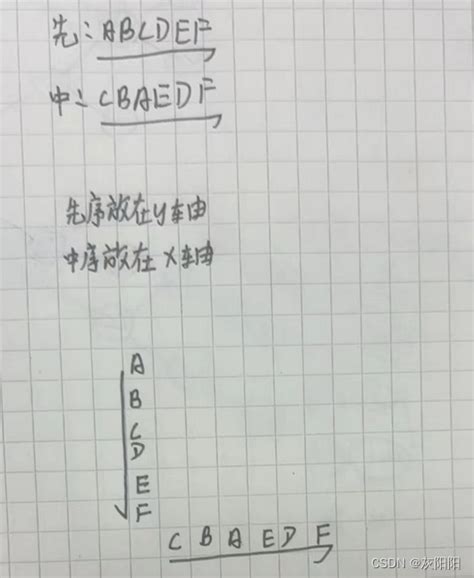 先:ABCDEF
中:CBAEDF
先序放在y轴
中序放在x轴
A
B
C
D
E
F
C B A E D F
CSDN @灰阳阳